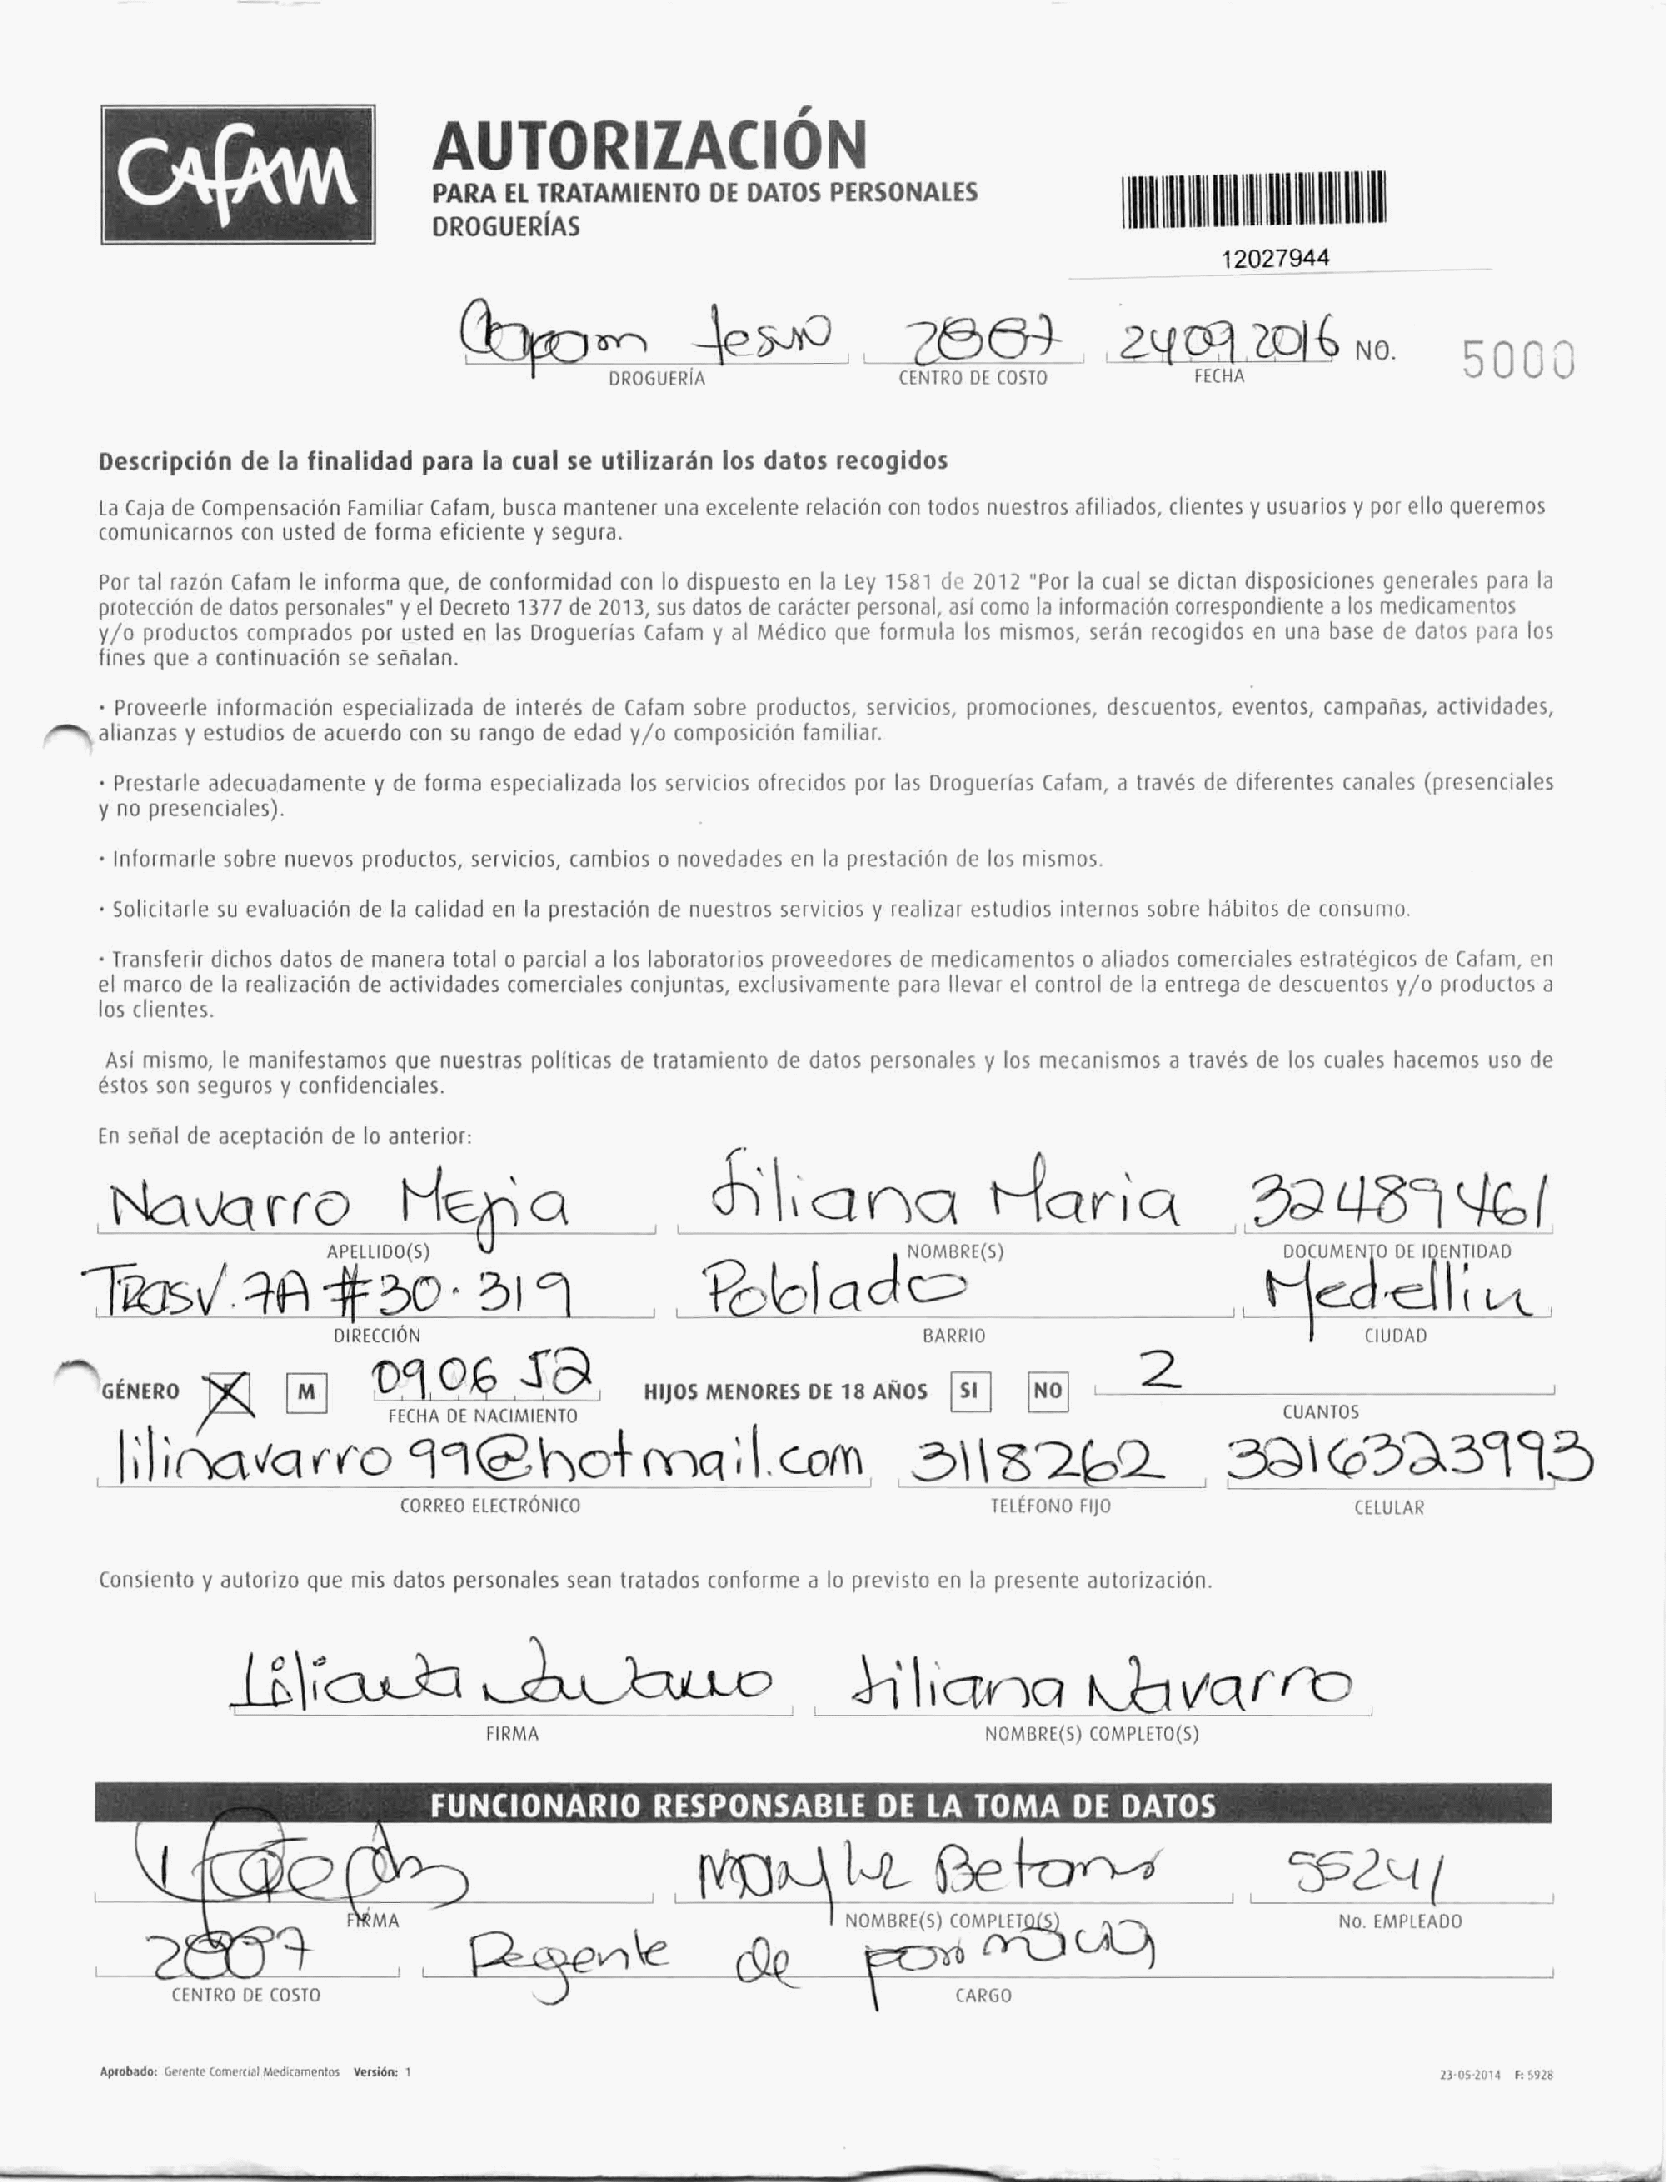 CAFAM
AUTORIZACIÓN
PARA EL TRATAMIENTO DE DATOS PERSONALES
DROGUERÍAS
12027944
2887 24 09 2016 NO. 5000
DROGUERÍA CENTRO DE COSTO FECHA
Descripción de la finalidad para la cual se utilizarán los datos recogidos
La Caja de Compensación Familiar Cafam, busca mantener una excelente relación con todos nuestros afiliados, clientes y usuarios y por ello queremos
comunicarnos con usted de forma eficiente y segura.
Por tal razón Cafam le informa que, de conformidad con lo dispuesto en la Ley 1581 de 2012 "Por la cual se dictan disposiciones generales para la
protección de datos personales" y el Decreto 1377 de 2013, sus datos de carácter personal, así como la información correspondiente a los medicamentos
y/o productos comprados por usted en las Droguerías Cafam y al Médico que formula los mismos, serán recogidos en una base de datos para los
fines que a continuación se señalan.
· Proveerle información especializada de interés de Cafam sobre productos, servicios, promociones, descuentos, eventos, campañas, actividades,
alianzas y estudios de acuerdo con su rango de edad y/o composición familiar.
· Prestarle adecuadamente y de forma especializada los servicios ofrecidos por las Droguerías Cafam, a través de diferentes canales (presenciales
y no presenciales).
· Informarle sobre nuevos productos, servicios, cambios o novedades en la prestación de los mismos.
· Solicitarle su evaluación de la calidad en la prestación de nuestros servicios y realizar estudios internos sobre hábitos de consumo.
· Transferir dichos datos de manera total o parcial a los laboratorios proveedores de medicamentos o aliados comerciales estratégicos de Cafam, en
el marco de la realización de actividades comerciales conjuntas, exclusivamente para llevar el control de la entrega de descuentos y/o productos a
los clientes.
Así mismo, le manifestamos que nuestras políticas de tratamiento de datos personales y los mecanismos a través de los cuales hacemos uso de
éstos son seguros y confidenciales.
En señal de aceptación de lo anterior:
Navarro Mejia Liliana Maria 32489461
APELLIDO(S) NOMBRE(S) DOCUMENTO DE IDENTIDAD
Trasv. 7A #30.319 Poblado Medellin
DIRECCIÓN BARRIO CIUDAD
GÉNERO M 09 06 52 HIJOS MENORES DE 18 AÑOS SI NO 2
FECHA DE NACIMIENTO CUANTOS
lilinavarro99@hotmail.com 3118262 3216323993
CORREO ELECTRÓNICO TELÉFONO FIJO CELULAR
Consiento y autorizo que mis datos personales sean tratados conforme a lo previsto en la presente autorización.
Liliana Navarro Liliana Navarro
FIRMA NOMBRE(S) COMPLETO(S)
FUNCIONARIO RESPONSABLE DE LA TOMA DE DATOS
55241
FIRMA NOMBRE(S) COMPLETO(S) No. EMPLEADO
Regente de
CENTRO DE COSTO CARGO
Aprobado: Gerente Comercial Medicamentos Versión: 1 23-05-2014 F: 5928